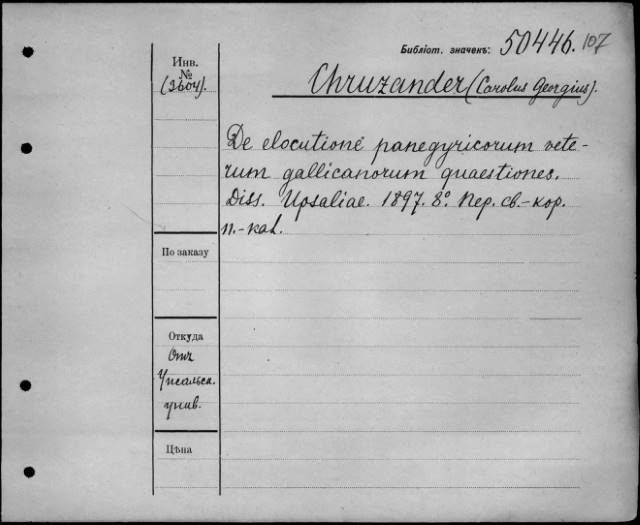 Библіот. значекъ: 50446. 107
Инв.
№
(3604).
Chruzander (Carolus Georgius).
De elocutione panegyricorum vete-
rum gallicanorum quaestiones.
Diss. Upsaliae. 1897. 8º. Пер. св.-кор.
п.-кал.
По заказу
Откуда
Отъ
Упсальск.
унив.
Цѣна